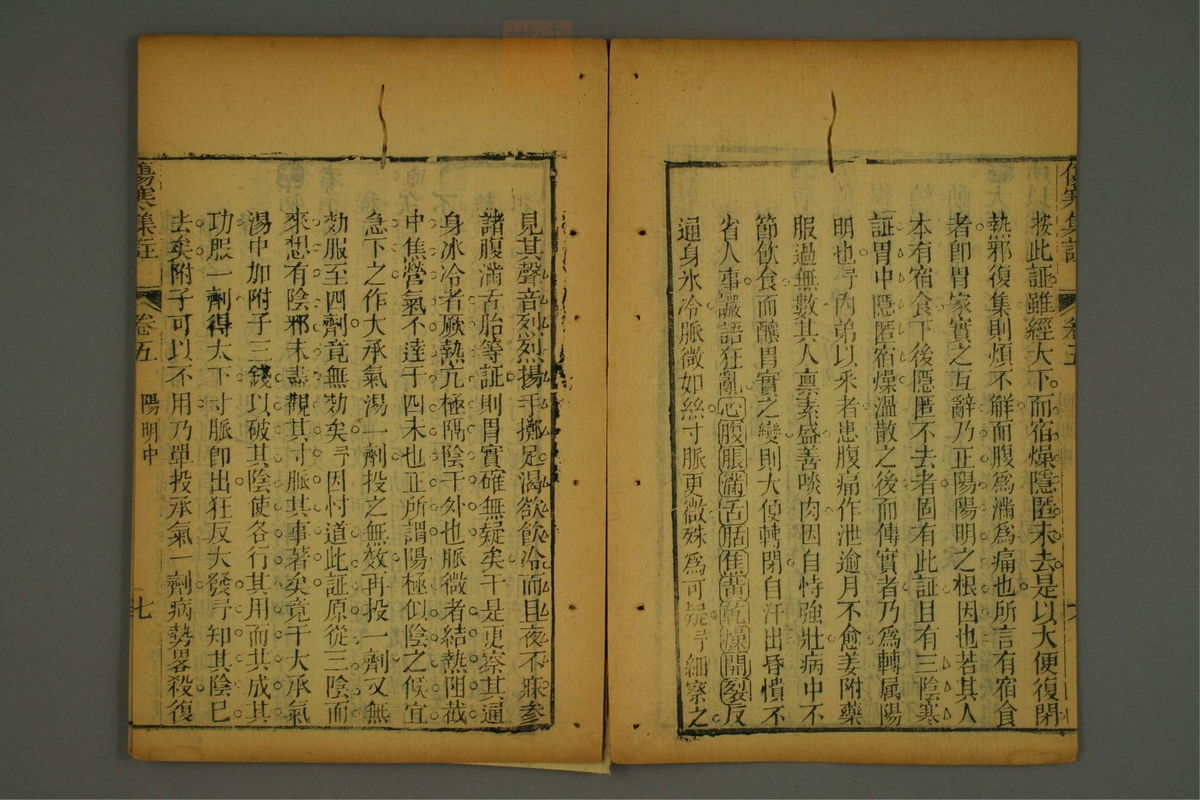 按此証雖經大下而宿燥隱匿未去是以大便復閉
熱邪復集則煩不解而腹爲滿爲痛也所言有宿食
者卽胃家實之互辭乃正陽陽明之根因也若其人
本有宿食下後隱匿不去者固有此証且有三陰寒
証胃中隱匿宿燥溫散之後而傳實者乃爲轉属陽
明也予內弟以采者患腹痛作泄逾月不愈姜附藥
服過無數其人稟素盛善啖肉因自恃強壯病中不
節飲食而釀胃實之變則大便轉閉自汗出昏憒不
省人事讝語狂亂心腹脹滿舌胎焦黃乾燥開裂反
逼身氷冷脈微如絲寸脈更微殊爲可疑予細察之
見其聲音烈烈揚手擲足渴欲飮冷而且夜不寐參
諸腹滿舌胎等証則胃實確無疑矣于是更察其遍
身氷冷者厥熱亢極隔陰于外也脈微者結熱阻截
中焦營氣不逹于四末也正所謂陽極似陰之候宜
急下之作大承氣湯一劑投之無效再投一劑又無
効服至四劑竟無効矣予因忖道此証原從三陰而
來想有陰邪未盡觀其寸脈其事著矣竟于大承氣
湯中加附子三錢以破其陰使各行其用而共成其
功服一劑得大下寸脈卽出狂反大發予知其陰已
去矣附子可以不用乃單投承氣一劑病勢畧殺復
傷寒集註
卷五
陽明中
七